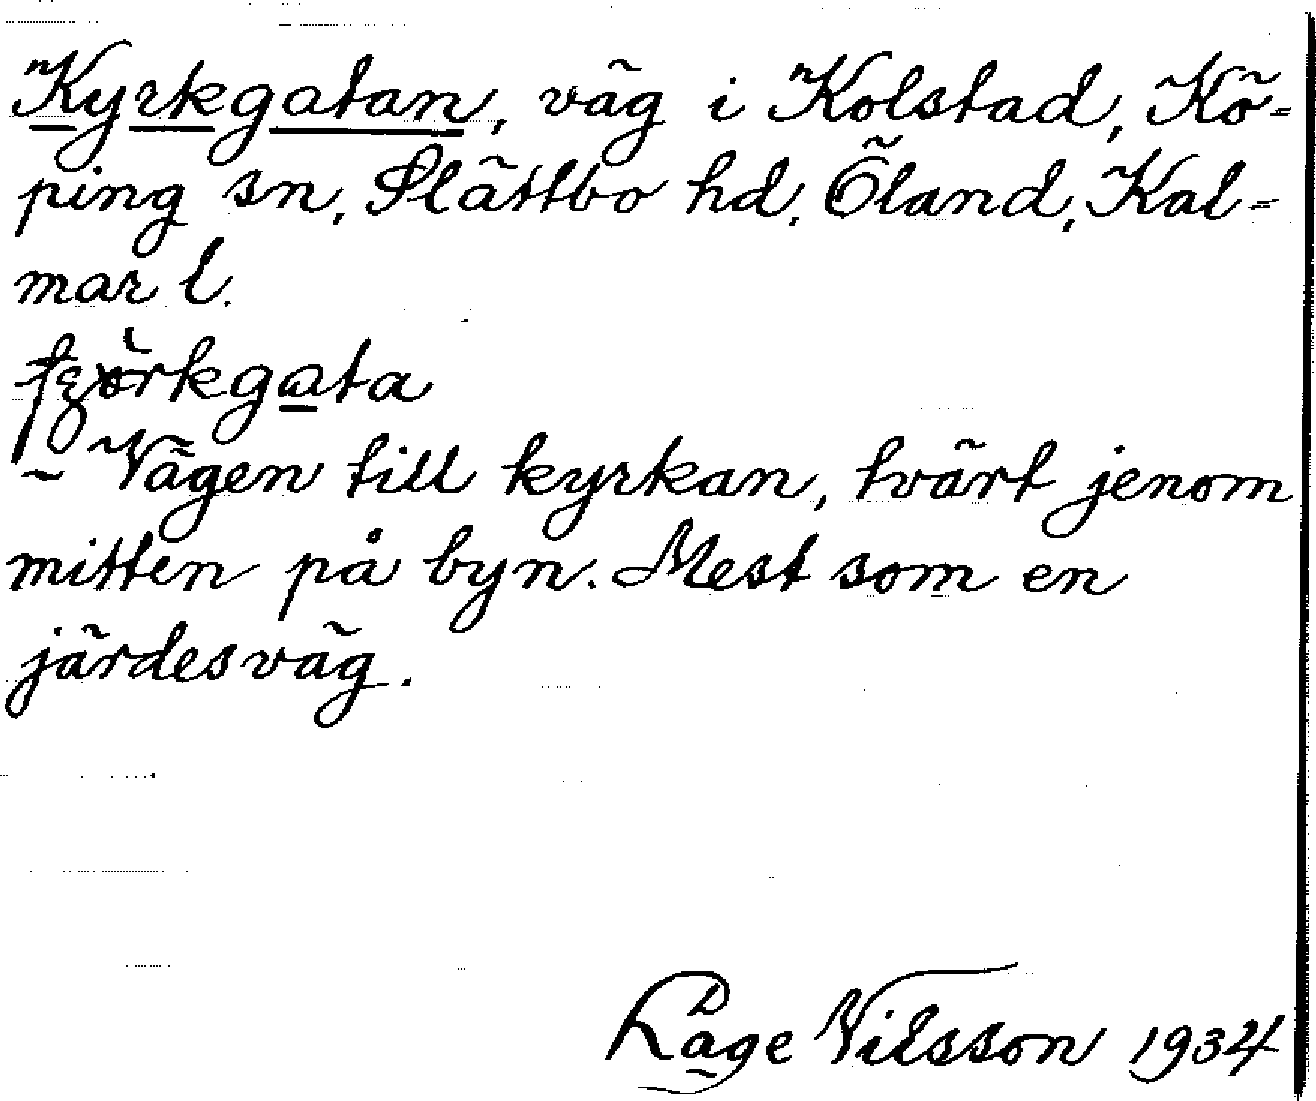 Kyrkgatan, väg i Kolstad, Kö-
ping sn, Slättbo hd, Öland, Kal-
mar l.
Vägen till kyrkan, tvärt jenom
mitten på byn. Mest som en
järdesväg.
Råge Nilsson 1934